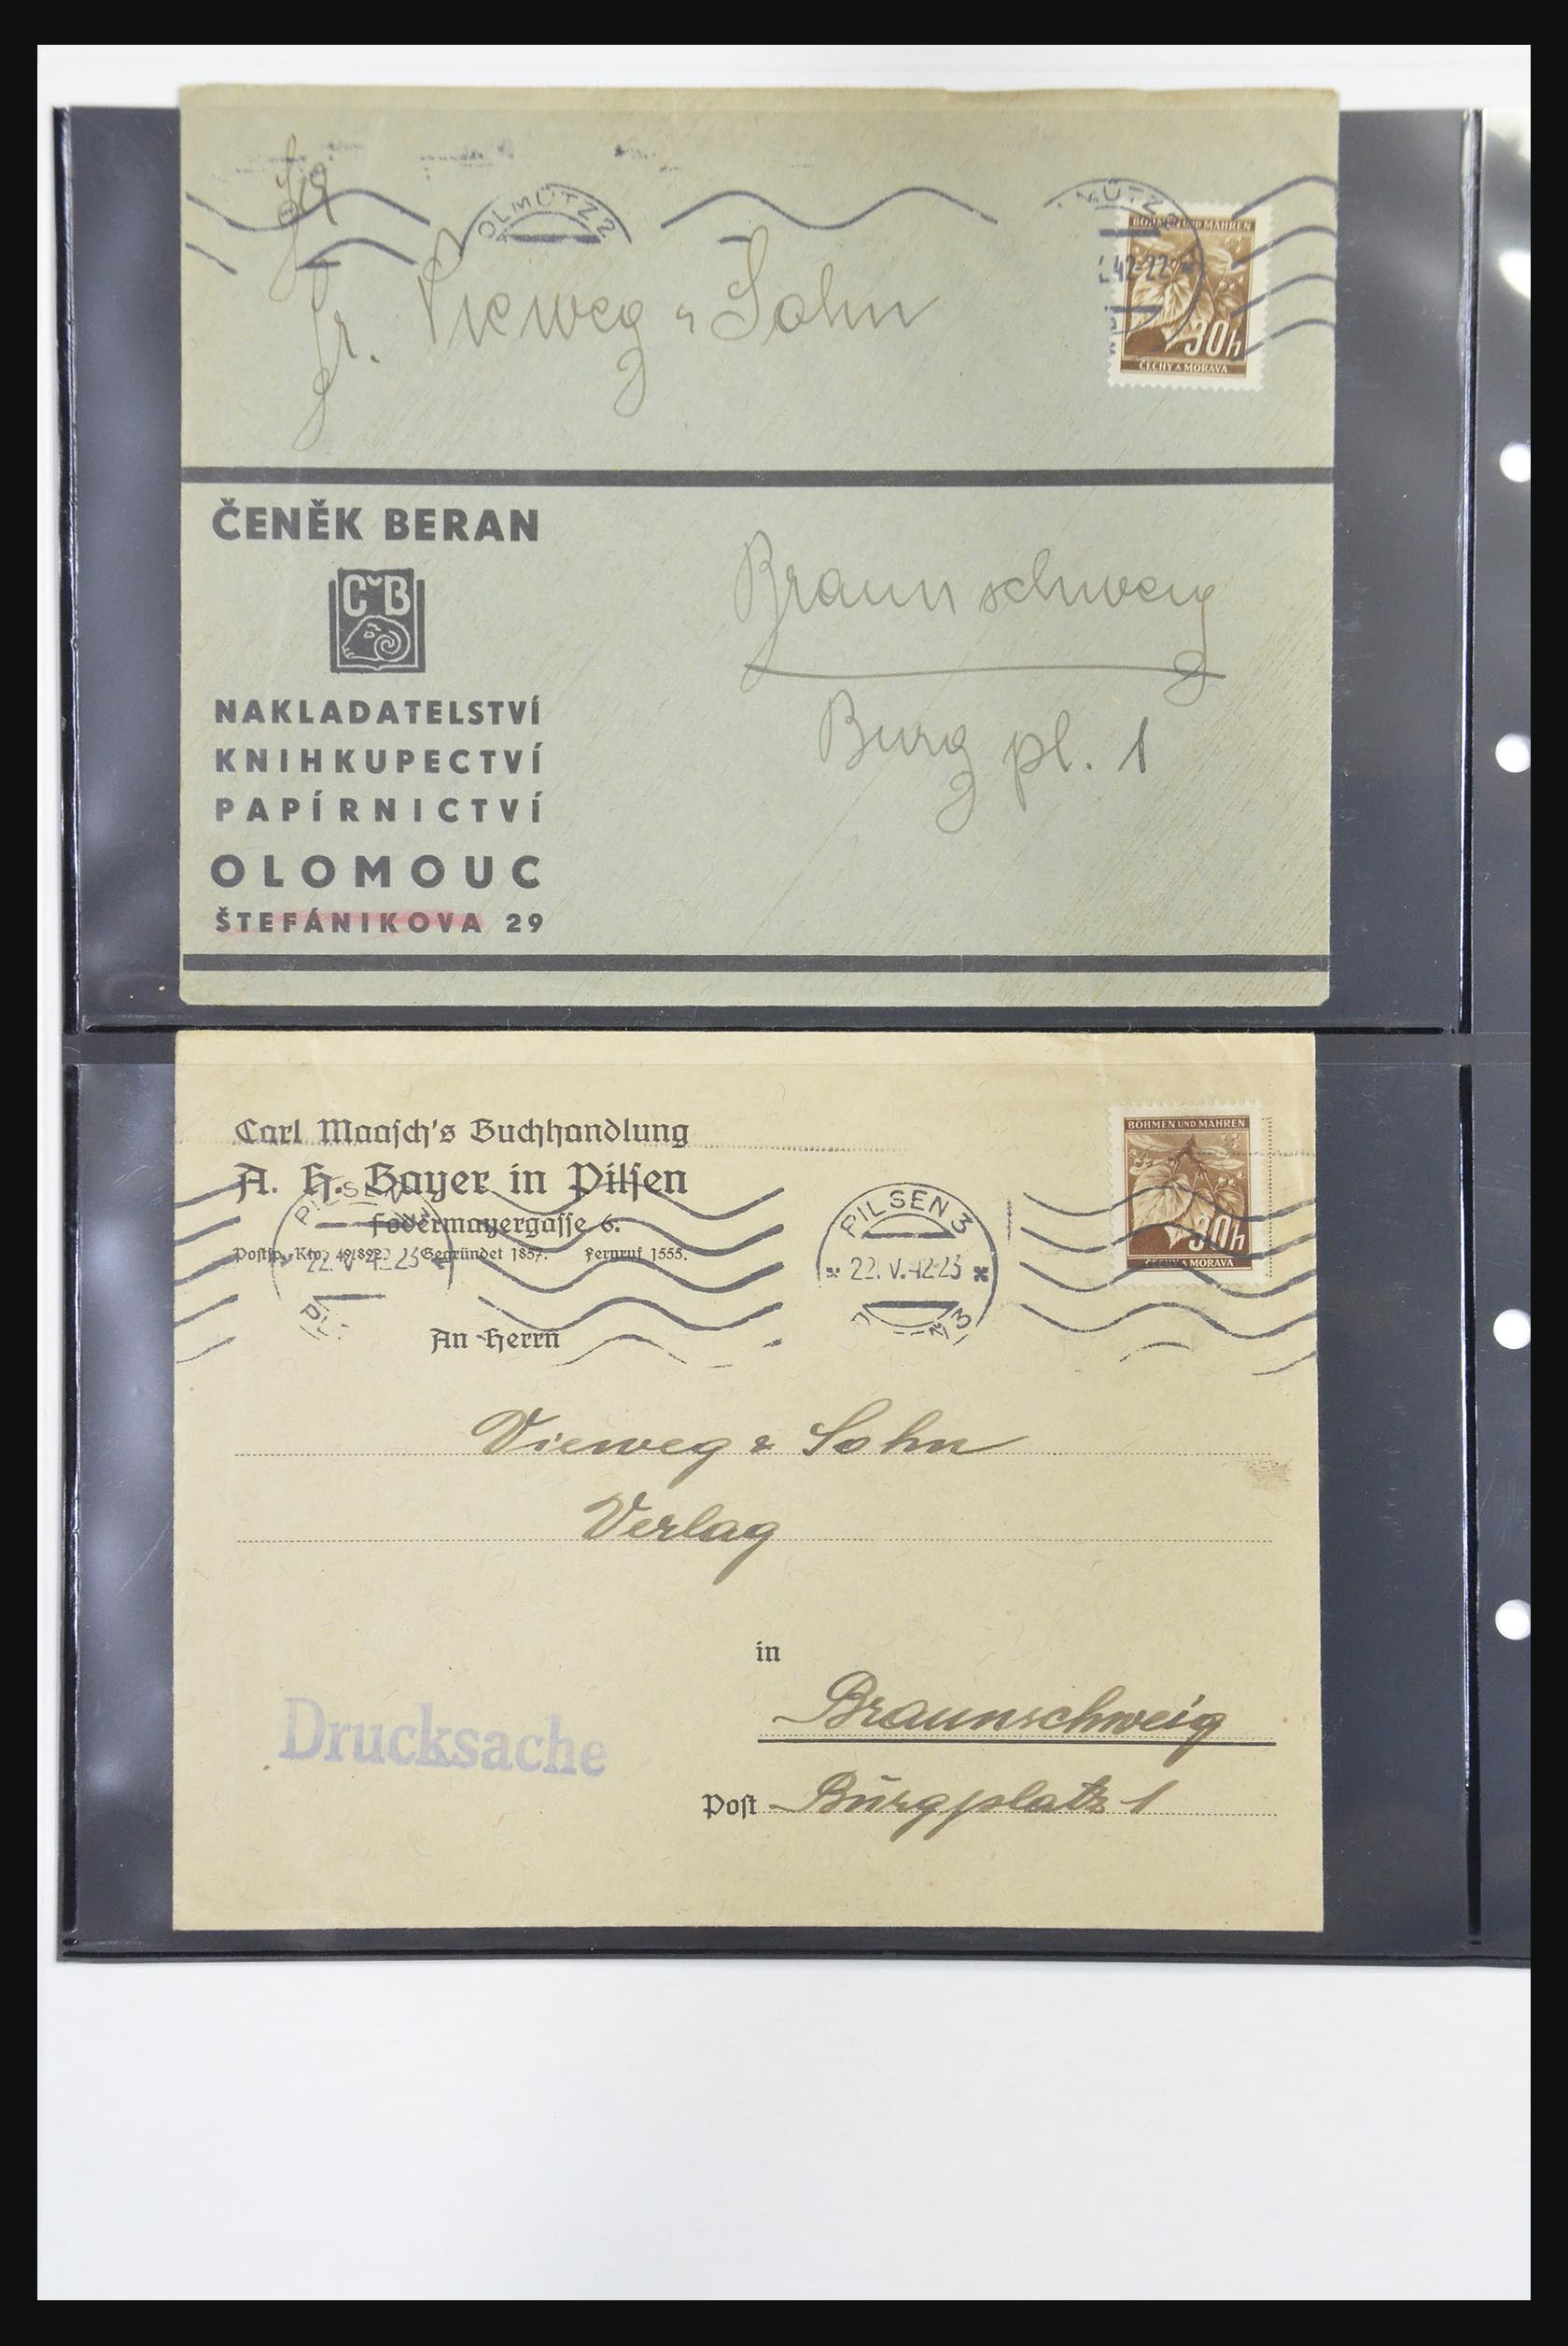 OLMÜTZ 2
MÜTZ 2
BÖHMEN UND MÄHREN
.42-22
30h
ČECHY A MORAVA
Fr. Vieweg & Sohn
ČENĚK BERAN
ČB
NAKLADATELSTVÍ
KNIHKUPECTVÍ
PAPÍRNICTVÍ
OLOMOUC
ŠTEFÁNIKOVA 29
Braunschweig
Burgpl. 1
Carl Maasch's Buchhandlung
A. H. Bayer in Pilsen
Fodermayergasse 6.
Postsp.-Kto. 49.892. Gegründet 1857. Fernruf 1555.
PILSEN
22. V. 42-23
PILSEN 3
* 22. V. 42-23 *
BÖHMEN UND MÄHREN
30h
ČECHY A MORAVA
An Herrn
Vieweg & Sohn
Verlag
in
Braunschweig
Drucksache
Post Burgplatz 1